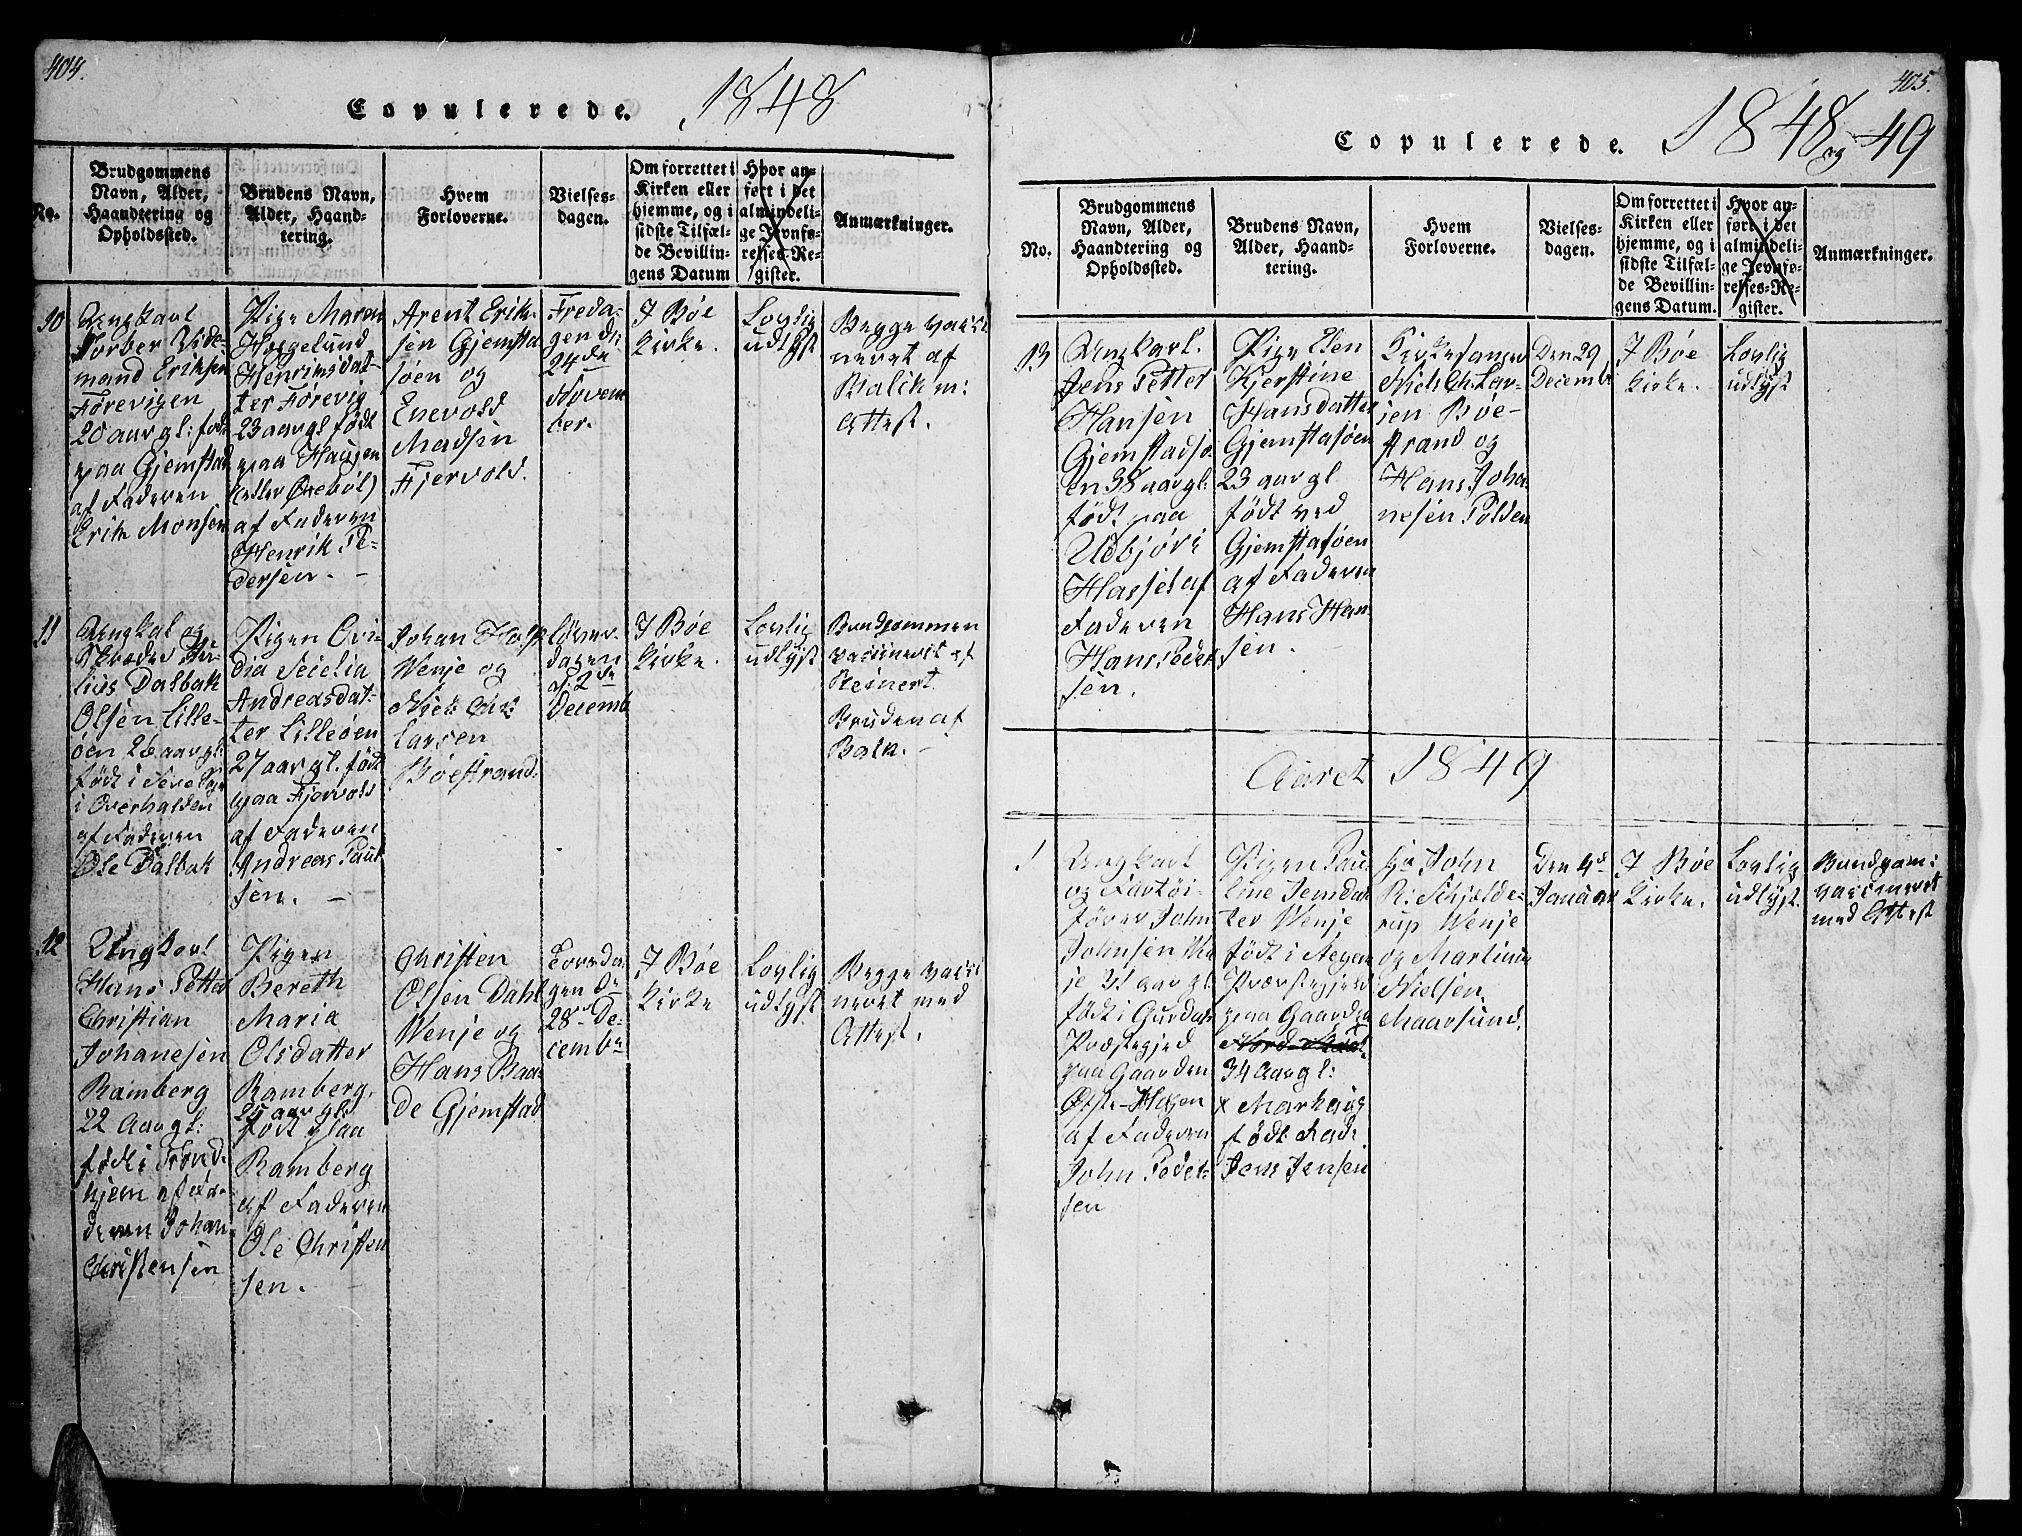 404.
Copulerede. 1848
No.
Brudgommens
Navn, Alder,
Haandtering og
Opholdssted.
Brudens Navn,
Alder, Haand-
tering.
Hvem
Forloverne.
Vielses-
dagen.
Om forrettet i
Kirken eller
hjemme, og i
sidste Tilfæl-
de Bevillin-
gens Datum
Hvor an-
ført i det
almindeli-
ge Jevnfø-
relses-Re-
gister.
Anmærkninger.
10
Ungkarl
Torber Vide-
mand Eriksen
Førevigen
20 aar gl: født
paa Gjemstad
af Faderen
Erik Monsen
Pige Maren
Hogelund
Henriksdat-
ter Førevig
23 aar gl født
paa Haugen
(eller Ørebøl)
af Faderen
Henrik Pe-
dersen. -
Arent Erik-
sen Gjemsta
søen og
Enevold
Madsen
Fjervold.
Freda-
gen den
24de
Novem
ber.
I Bøe
Kirke.
Lovlig
udlyst
Begge vacci
neret af
Balck m:
Attest.
11
Ungkal og
Skræder Ju-
lius Dalbak
Olsen Lille-
øen 26 aar gl:
født i
i Overhalden
af Faderen
Ole Dalbak
Pigen Ovi-
dia Seielia
Andreasdat-
ter Lilleøen
27 aar gl. født
paa Fjervold
af Faderen
Andreas Paul
sen. -
Johan
Wenje og
Niels Chr
Larsen
Bøestrand.
Løver-
dagen
d. 2de
Decemb
I Bøe
Kirke.
Lovlig
udlyst
Brudgommen
vaccineret af
Steinert.
Bruden af
Balk. -
12
Ungkarl
Hans Petter
Christian
Johanesen
Ramberg
22 Aar gl:
født i Trond-
hjem af Fa-
deren Johan
Christensen
Pigen
Bereth
Maria
Olsdatter
Ramberg,
25 aar gl:
født paa
Ramberg
af Faderen
Ole Christen
sen. -
Christen
Olsen Dahl
Wenje og
Hans Baa-
de Gjemstad
gen de
28de De-
cembr
I Bøe
Kirke
Lovlig
udlyst.
Begge vacci
neret med
Attest.
405.
Copulerede. 1848 og 49
No.
Brudgommens
Navn, Alder,
Haandtering og
Opholdssted.
Brudens Navn,
Alder, Haand-
tering.
Hvem
Forloverne.
Vielses-
dagen.
Om forrettet i
Kirken eller
hjemme, og i
sidste Tilfæl-
de Bevillin-
gens Datum.
Hvor an-
ført i det
almindeli-
ge Jevnfø-
relses-Re-
gister.
Anmærkninger.
13
Ungkarl.
Jens Petter
Hansen
Gjemstadsø
en 38 aar gl:
født paa
Uebjøri
Hassel af
Faderen
Hans Peder
sen.
Pige Elen
Kjerstine
Hansdatter
Gjemstasøen
23 aar gl
født ved
Gjemstasøen
af Faderen
Hans Han
sen. -
Kirkesanger
Niels Ch. Lar-
sen Bøe-
strand og
Hans Joha
nesen Polden
Den 29
Decemb
I Bøe
Kirke.
Lovlig
udlyst
Aaret 1849
1
Ungkarl
og Fartøi-
fører John
Johnsen We
je 31 aar gl
født i
Præstegjed
paa Gaarden
Øfste-Hagen
af Faderen
John Peder-
sen
Pigen Pau-
line Jensdat
ter Wenje
født i
Præstegjeld
paa Gaarden
34 Aar gl:
x Markaug
født. Fade
Jens Jensen
Hr John
R. Schjelde-
rup Wenje
og Martinus
Nielsen
Maarsund.
Den 4d
Januar
I Bøe
Kirke.
Lovlig
udlyst.
Brudgom:
vaccineret
med Attest